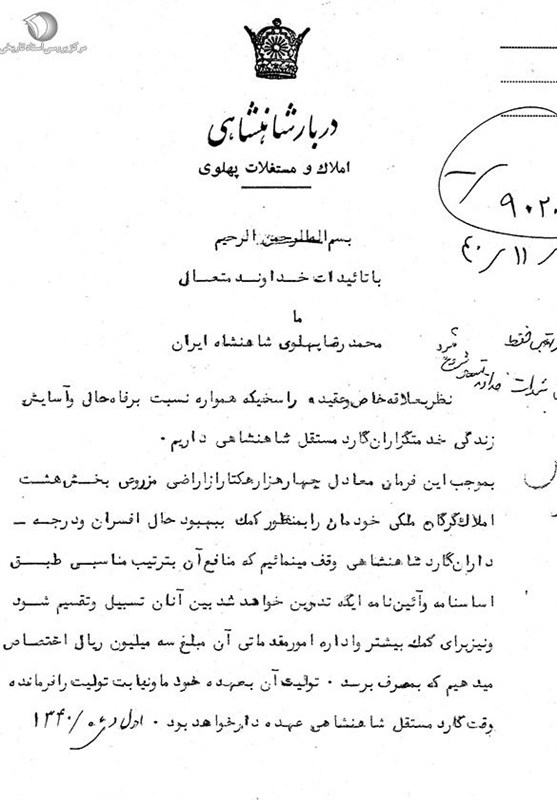 مرکز بررسی اسناد تاریخی
دربار شاهنشاهی
املاک و مستغلات پهلوی
۹۰۲۰
۴۰/۱۱/
بسم الله الرحمن الرحیم
با تائیدات خداوند متعال
ما
محمد رضا پهلوی شاهنشاه ایران
فقط
نظر بعلاقه خاص و عقیده راسخیکه همواره نسبت برفاه حال و آسایش
زندگی خدمتگزاران گارد مستقل شاهنشاهی داریم ۰
بموجب این فرمان معادل چهار هزار هکتار از اراضی مزروعی بخش هشت
املاک گرگان ملکی خودمان را بمنظور کمک ببهبود حال افسران و درجه ـ
داران گارد شاهنشاهی وقف مینمائیم که منافع آن بترتیب مناسبی طبق
اساسنامه و آئین نامه ایکه تدوین خواهد شد بین آنان تسبیل و تقسیم شود
و نیز برای کمک بیشتر و اداره امور مقدماتی آن مبلغ سه میلیون ریال اختصاص
میدهیم که بمصرف برسد ۰ تولیت آن بعهده خود ما و نیابت تولیت را فرمانده
وقت گارد مستقل شاهنشاهی عهده دار خواهد بود ۰ اول دی ماه/۱۳۴۰